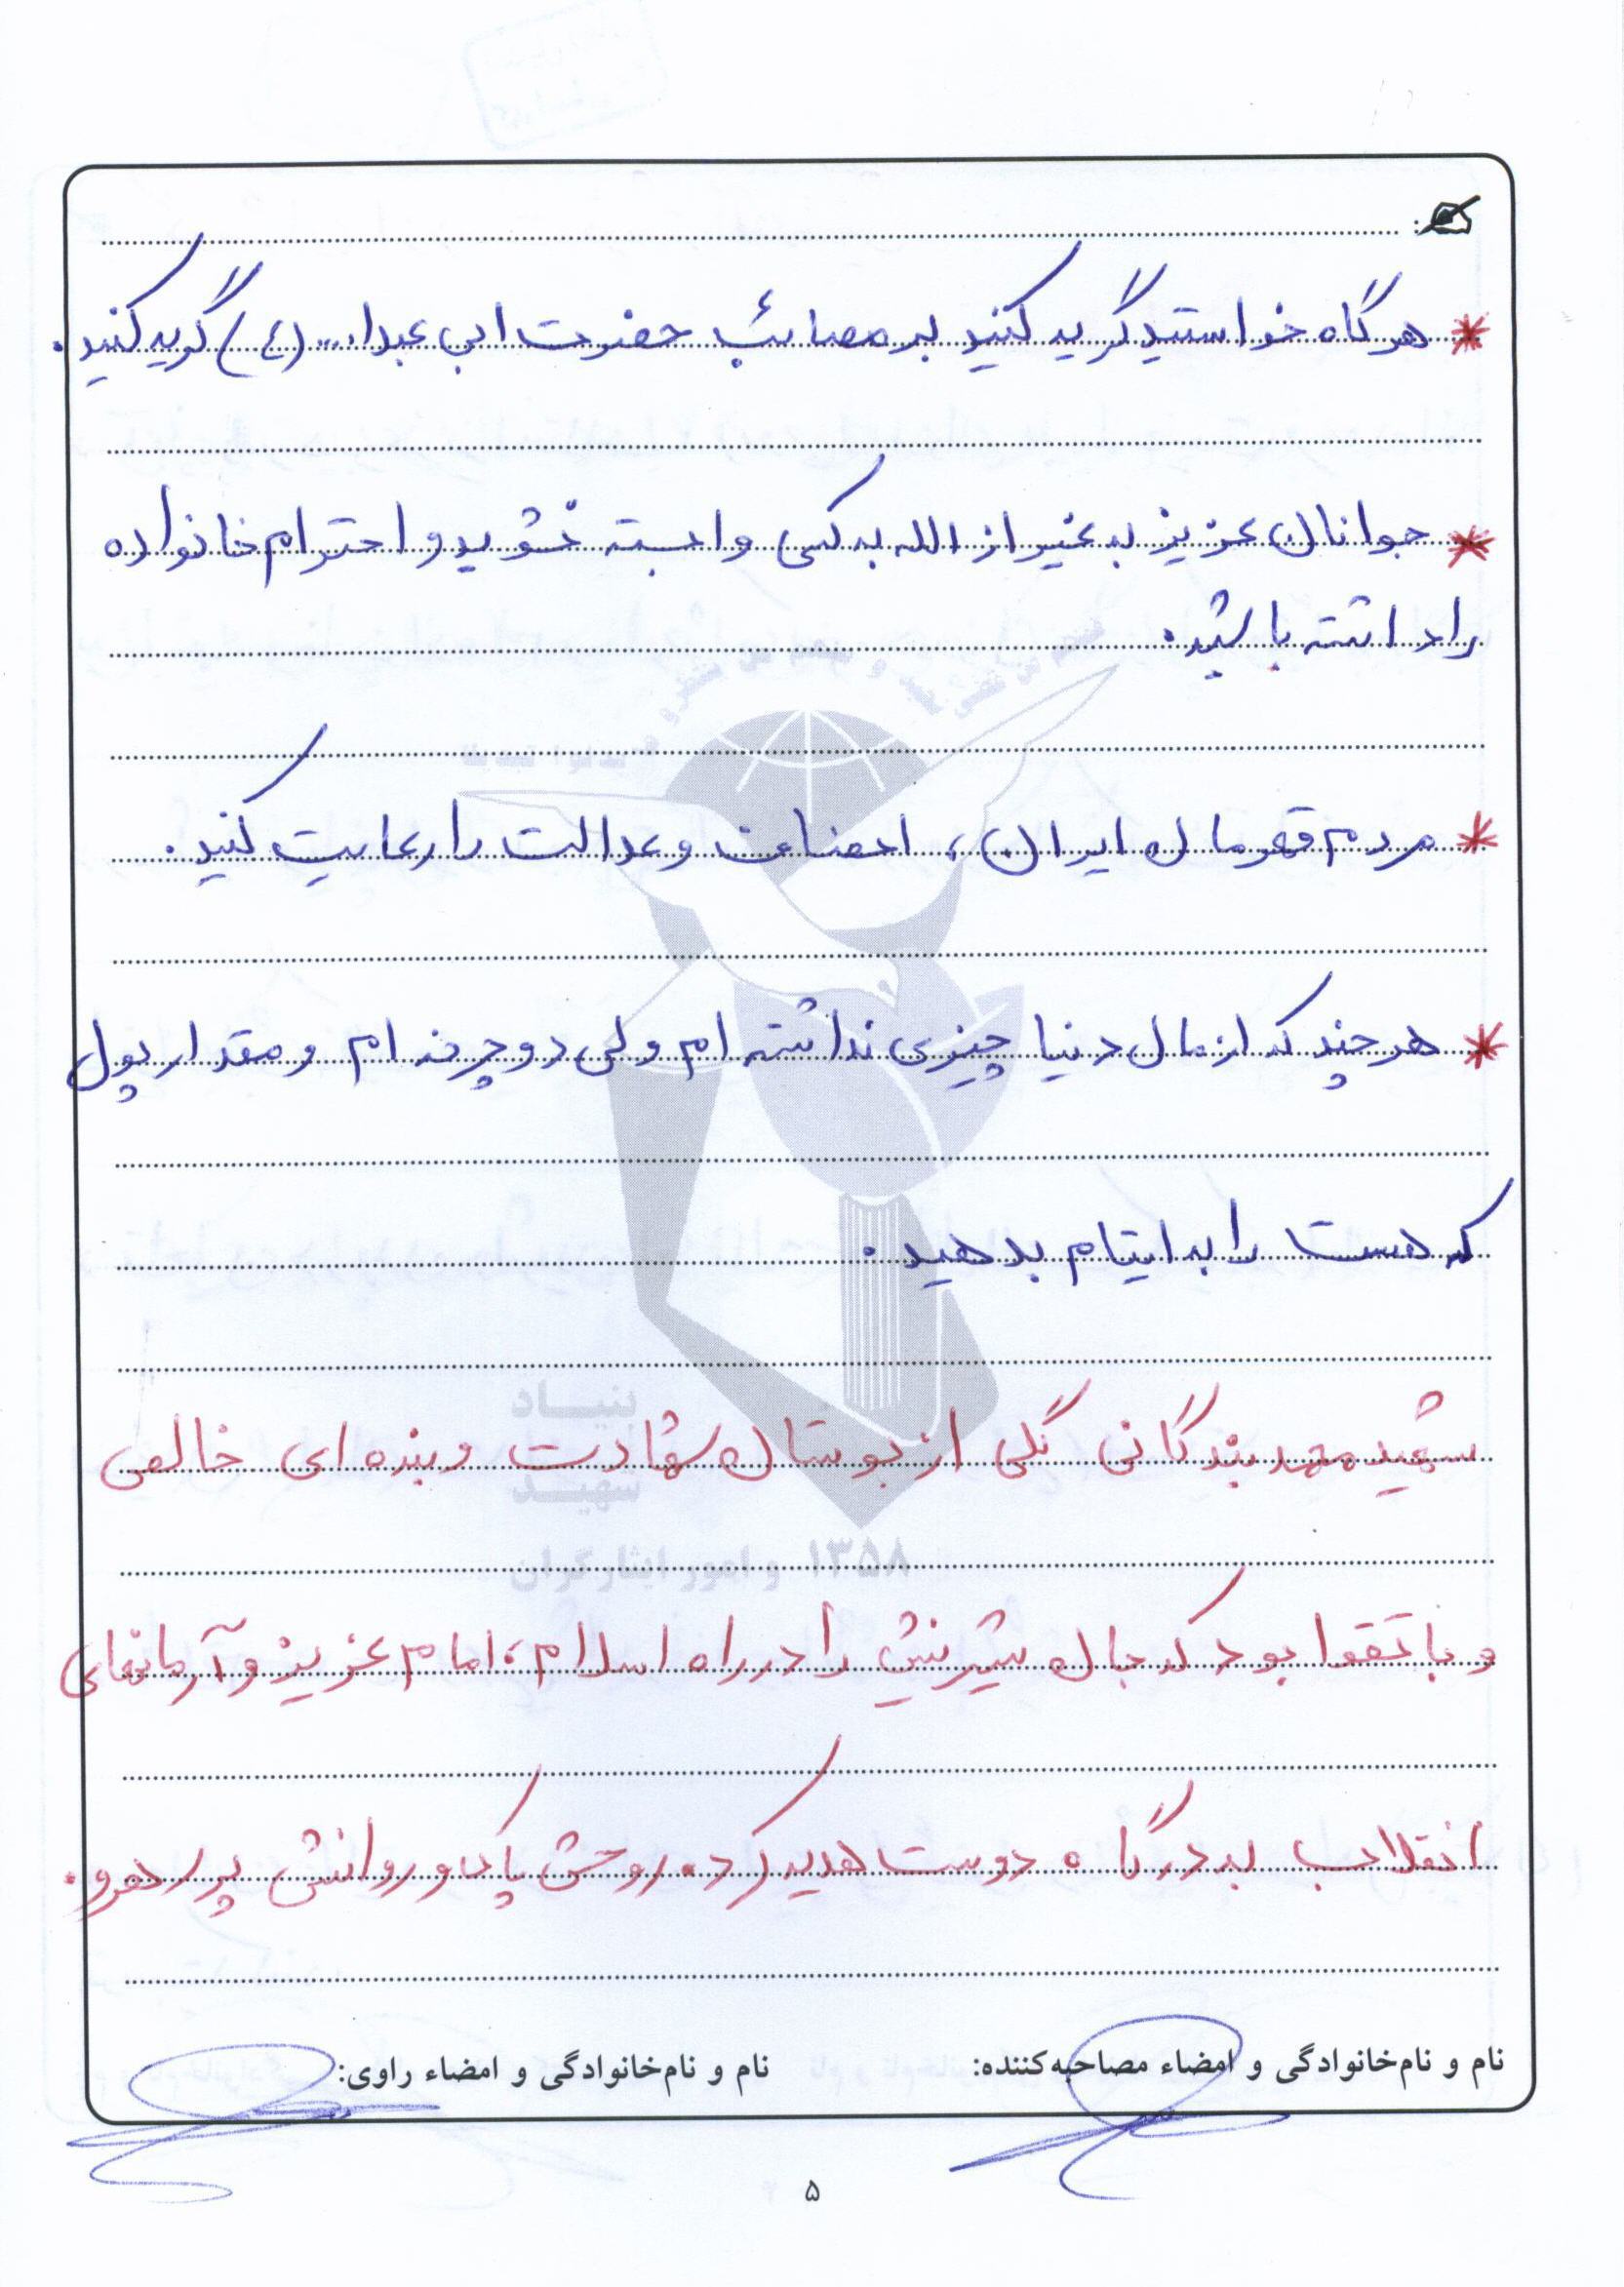 * هر گاه خواستید گریه کنید بر مصائب حضرت ابی عبدا... (ع) گریه کنید.
* جوانان عزیز به غیر از الله به کسی وابسته نشوید و احترام خانواده
را داشته باشید.
* مردم قهرمان ایران، انصاف و عدالت را رعایت کنید.
* هر چند که از مال دنیا چیزی نداشته ام ولی دوچرخه ام و مقدار پول
که هست را به ایتام بدهید.
شهید محمد بندگانی گلی از بوستان شهادت و بنده ای خالص
و با تقوا بود که جان شیرینش را در راه اسلام، امام عزیز و آرمانهای
انقلاب به درگاه دوست هدیه کرد. روحش پاک و روانش پر رهرو.
بنیاد
شهید
۱۳۵۸ و امور ایثارگران
نام و نام‌خانوادگی و امضاء مصاحبه‌کننده: نام و نام‌خانوادگی و امضاء راوی:
۵